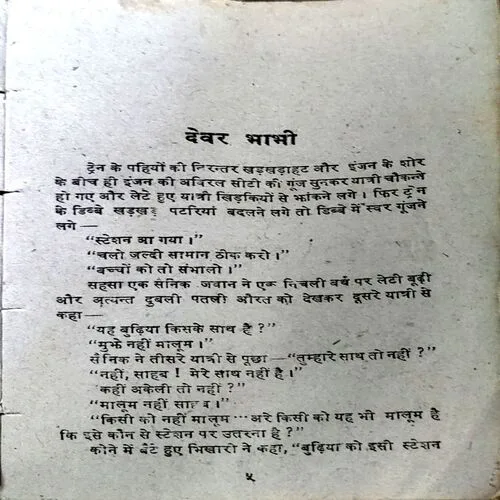 देवर भाभी
ट्रेन के पहियों की निरन्तर खड़खड़ाहट और इंजन के शोर
के बीच ही इंजन की अविरल सीटी की गूंज सुनकर यात्री चौकन्ने
हो गए और लेटे हुए यात्री खिड़कियों से झांकने लगे । फिर ट्रेन
के डिब्बे खड़खड़ पटरियां बदलने लगे तो डिब्बे में स्वर गूंजने
लगे —
“स्टेशन आ गया ।”
“चलो जल्दी सामान ठीक करो ।”
“बच्चों को तो संभालो ।”
सहसा एक सैनिक जवान ने एक निचली बर्थ पर लेटी बूढ़ी
और अत्यन्त दुबली पतली औरत को देखकर दूसरे यात्री से
कहा —
“यह बुढ़िया किसके साथ है ?”
“मुझे नहीं मालूम ।”
सैनिक ने तीसरे यात्री से पूछा — “तुम्हारे साथ तो नहीं ?”
“नहीं, साहब ! मेरे साथ नहीं है ।
कहीं अकेली तो नहीं ?”
“मालूम नहीं साहब ।”
“किसी को नहीं मालूम … अरे किसी को यह भी मालूम है
कि इसे कौन से स्टेशन पर उतरना है ?”
कोने में बैठे हुए भिखारी ने कहा, “बुढ़िया को इसी स्टेशन
५